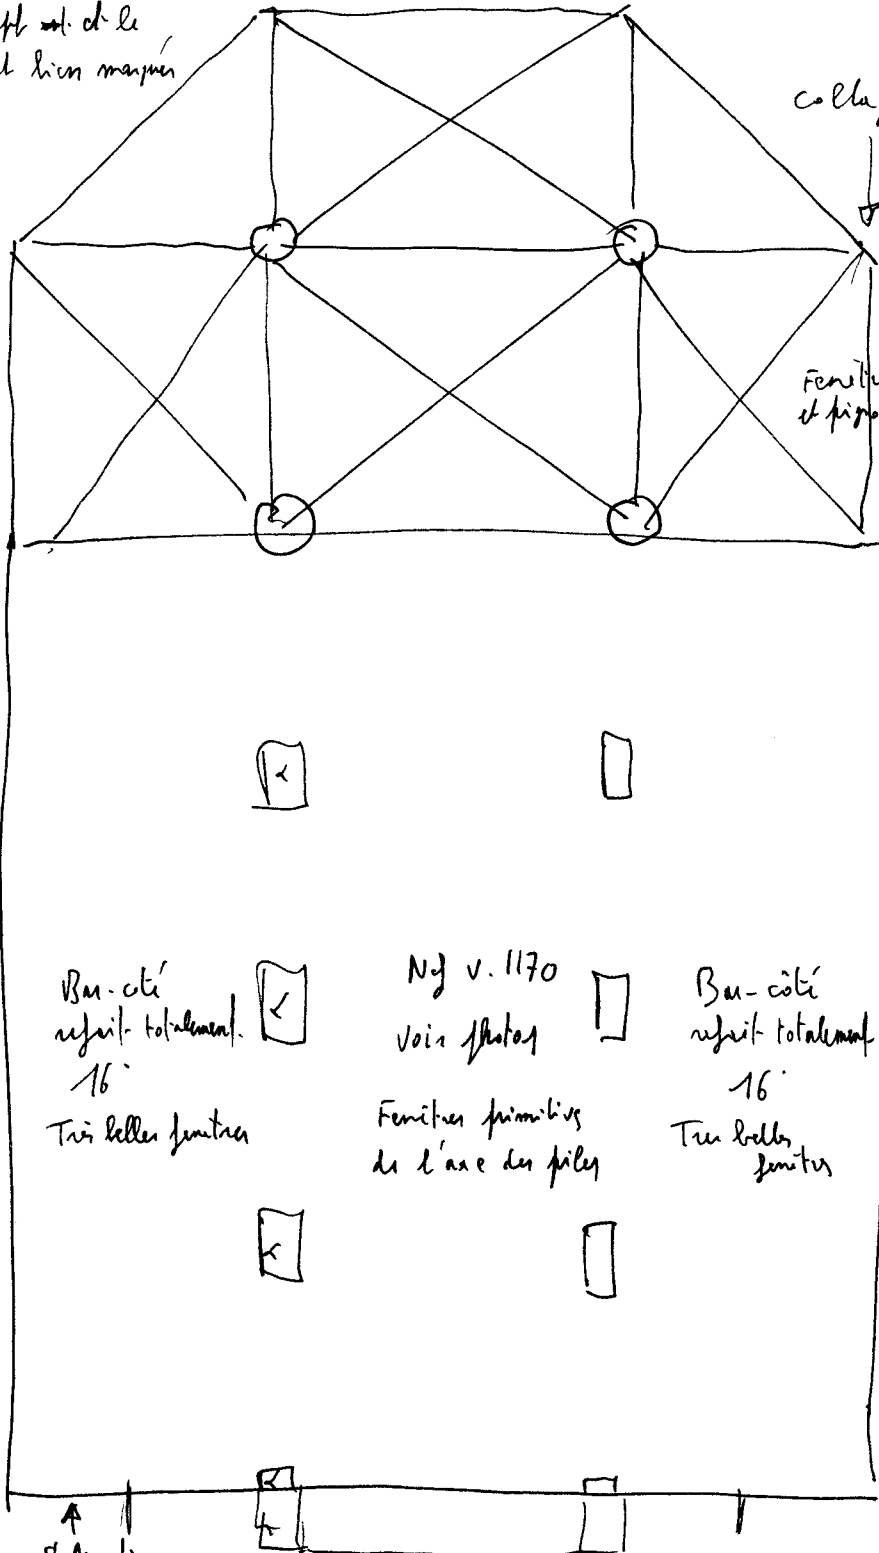 et le
bien marqués
Colla
Fenêt
et pign
Bas-côté
refait totalement
16°
Très belles fenêtres
Nef v. 1170
Voir photos
Fenêtres primitives
de l'axe des piles
Bas-côté
refait totalement
16°
Très belles
fenêtres